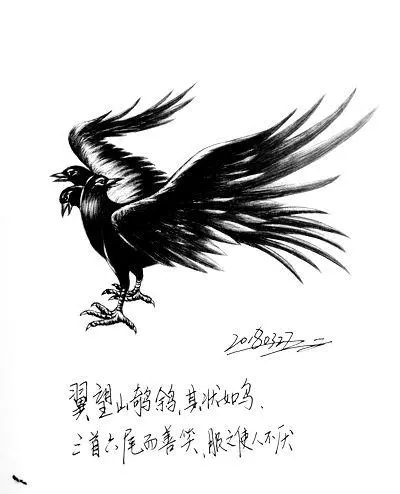 20180327
翼望山鹌鹆,其状如乌,
三首六尾而善笑,服之使人不厌